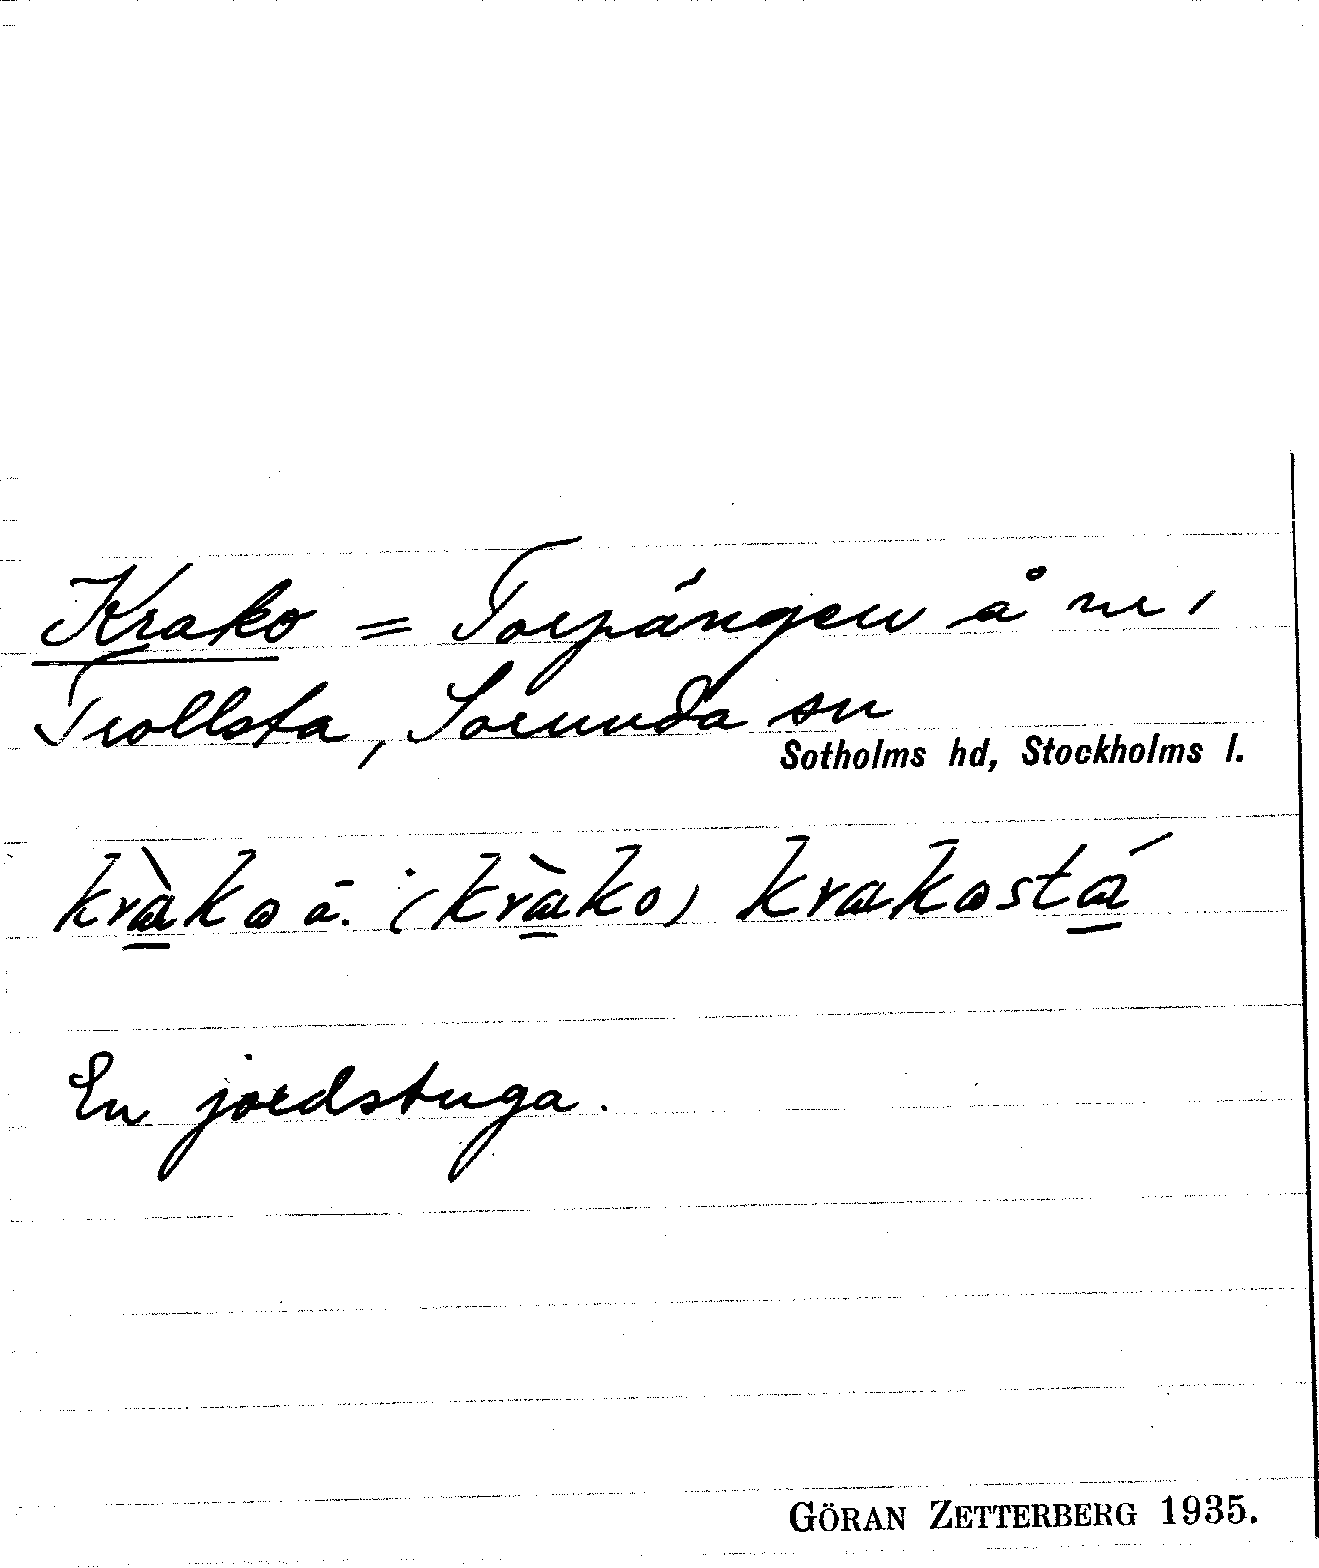 Krako = Torpängen å nr 1
Trollsta, Sorunda sn
Sotholms hd, Stockholms l.
kràko ä. (kràko) krakostá
En jordstuga.
GÖRAN ZETTERBERG 1935.